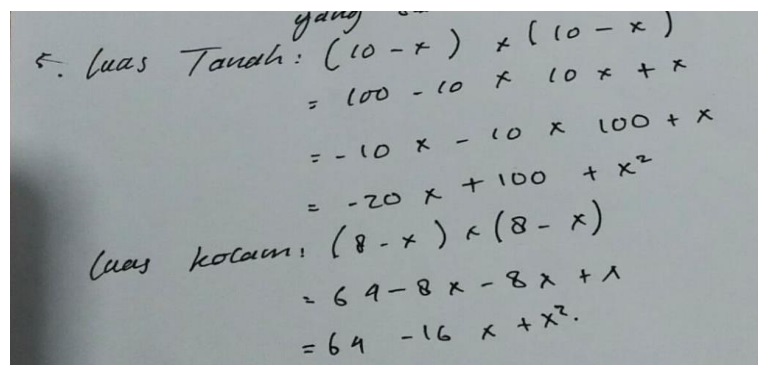 yang
5. Luas Tanah: (10 - x) x (10 - x)
= 100 - 10 x 10 x + x
= - 10 x - 10 x 100 + x
= -20 x + 100 + x²
Luas kolam: (8 - x) x (8 - x)
= 64 - 8 x - 8 x + x
= 64 - 16 x + x².